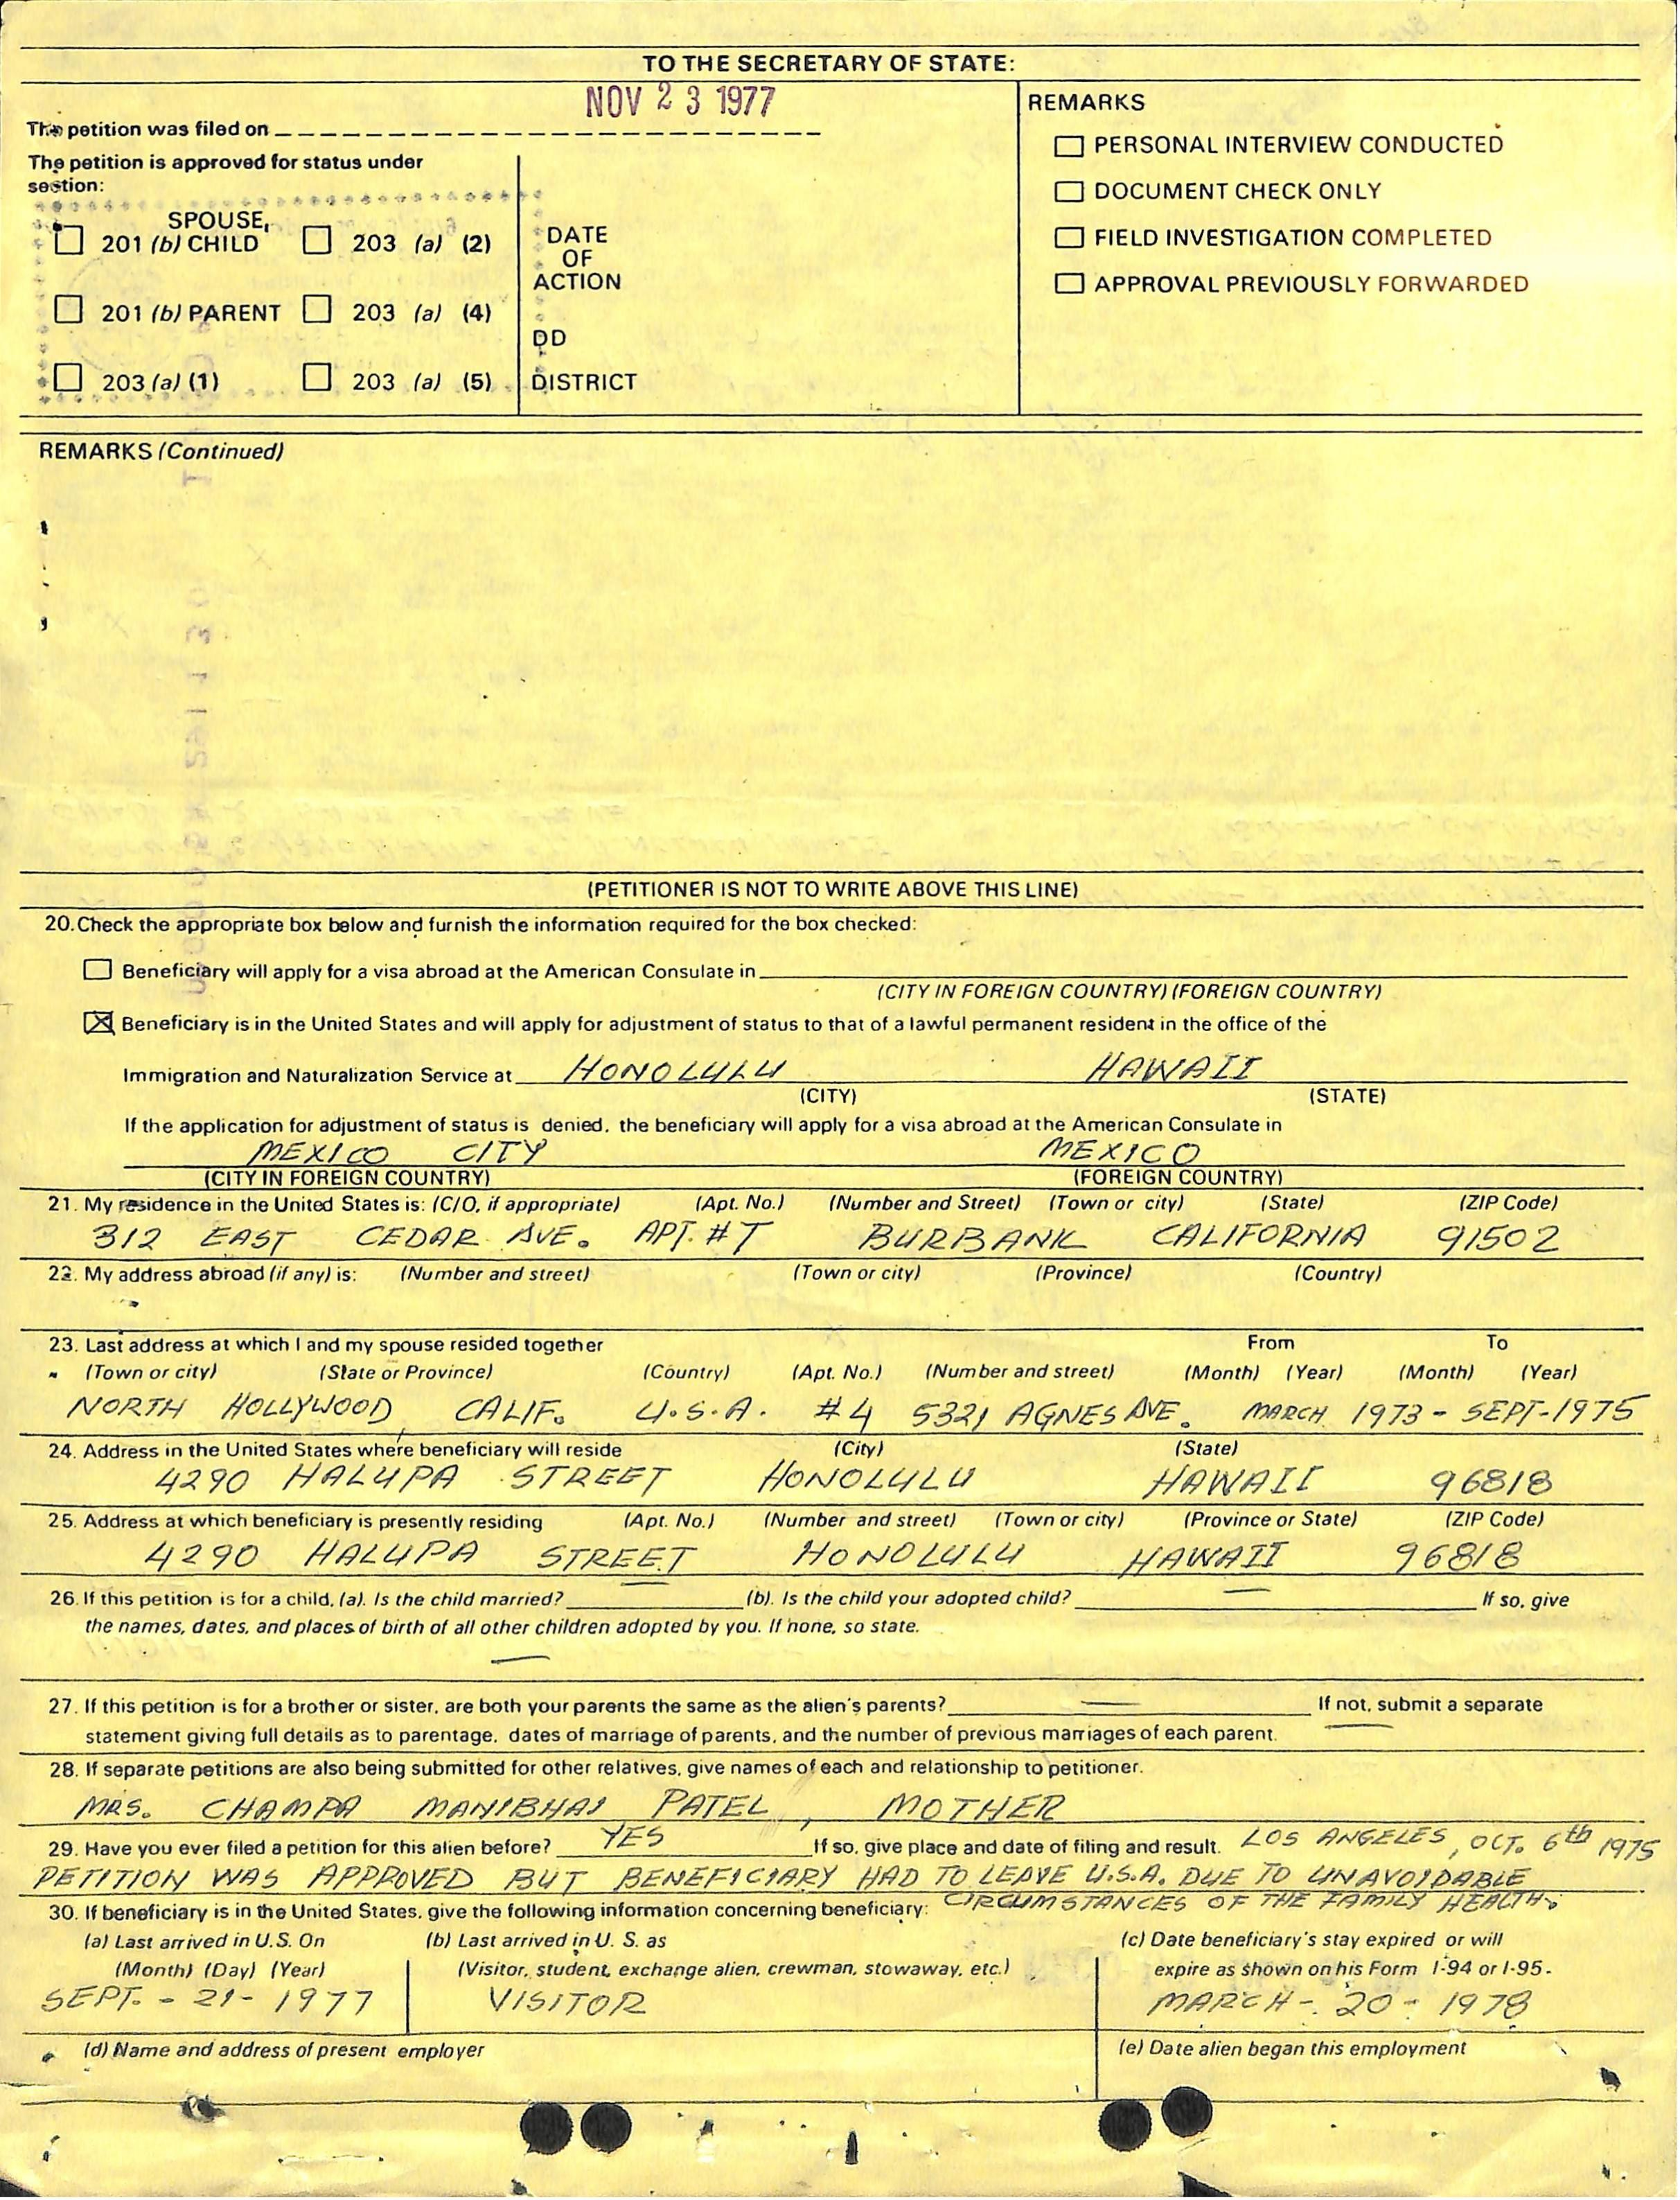 TO THE SECRETARY OF STATE:
NOV 23 1977
The petition was filed on
The petition is approved for status under
section:
SPOUSE,
201 (b) CHILD 203 (a) (2)
201 (b) PARENT 203 (a) (4)
203 (a) (1) 203 (a) (5)
DATE
OF
ACTION
DD
DISTRICT
REMARKS
PERSONAL INTERVIEW CONDUCTED
DOCUMENT CHECK ONLY
FIELD INVESTIGATION COMPLETED
APPROVAL PREVIOUSLY FORWARDED
REMARKS (Continued)
(PETITIONER IS NOT TO WRITE ABOVE THIS LINE)
20. Check the appropriate box below and furnish the information required for the box checked:
Beneficiary will apply for a visa abroad at the American Consulate in
(CITY IN FOREIGN COUNTRY) (FOREIGN COUNTRY)
Beneficiary is in the United States and will apply for adjustment of status to that of a lawful permanent resident in the office of the
Immigration and Naturalization Service at HONOLULU HAWAII
(CITY) (STATE)
If the application for adjustment of status is denied, the beneficiary will apply for a visa abroad at the American Consulate in
MEXICO CITY MEXICO
(CITY IN FOREIGN COUNTRY) (FOREIGN COUNTRY)
21. My residence in the United States is: (C/O, if appropriate) (Apt. No.) (Number and Street) (Town or city) (State) (ZIP Code)
312 EAST CEDAR AVE. APT. #T BURBANK CALIFORNIA 91502
22. My address abroad (if any) is: (Number and street) (Town or city) (Province) (Country)
23. Last address at which I and my spouse resided together From To
(Town or city) (State or Province) (Country) (Apt. No.) (Number and street) (Month) (Year) (Month) (Year)
NORTH HOLLYWOOD, CALIF. U.S.A. #4 5321 AGNES AVE. MARCH 1973 - SEPT-1975
24. Address in the United States where beneficiary will reside (City) (State)
4290 HALUPA STREET HONOLULU HAWAII 96818
25. Address at which beneficiary is presently residing (Apt. No.) (Number and street) (Town or city) (Province or State) (ZIP Code)
4290 HALUPA STREET HONOLULU HAWAII 96818
26. If this petition is for a child, (a). Is the child married? (b). Is the child your adopted child? If so, give
the names, dates, and places of birth of all other children adopted by you. If none, so state.
27. If this petition is for a brother or sister, are both your parents the same as the alien's parents? If not, submit a separate
statement giving full details as to parentage, dates of marriage of parents, and the number of previous marriages of each parent.
28. If separate petitions are also being submitted for other relatives, give names of each and relationship to petitioner.
MRS. CHAMPA MANIBHAI PATEL, MOTHER
29. Have you ever filed a petition for this alien before? YES If so, give place and date of filing and result. LOS ANGELES, OCT. 6th 1975
PETITION WAS APPROVED BUT BENEFICIARY HAD TO LEAVE U.S.A. DUE TO UNAVOIDABLE
CIRCUMSTANCES OF THE FAMILY HEALTH.
30. If beneficiary is in the United States, give the following information concerning beneficiary:
(a) Last arrived in U.S. On (b) Last arrived in U. S. as (c) Date beneficiary's stay expired or will
(Month) (Day) (Year) (Visitor, student, exchange alien, crewman, stowaway, etc.) expire as shown on his Form I-94 or I-95.
SEPT. - 21 - 1977 VISITOR MARCH - 20 - 1978
(d) Name and address of present employer (e) Date alien began this employment